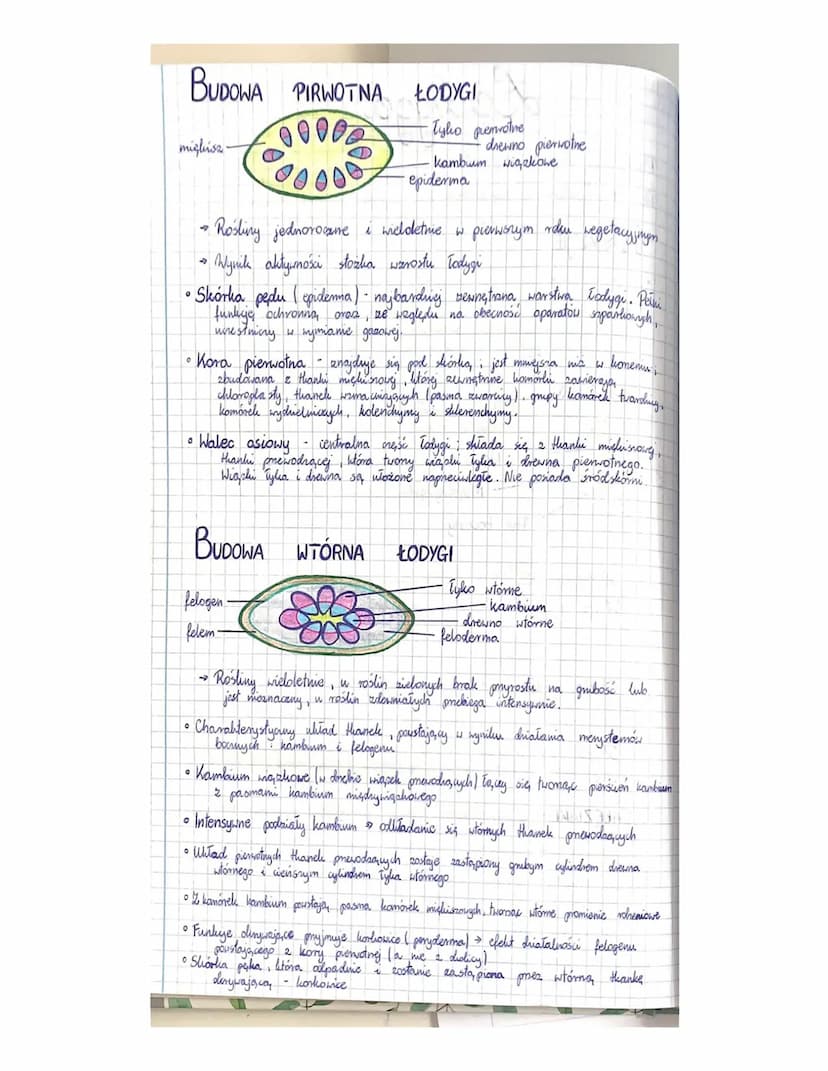 BUDOWA PIRWOTNA ŁODYGI
łyko pierwotne
drewno pierwotne
miękisz
kambium wiązkowe
epiderma
→ Rośliny jednoroczne i wieloletnie w pierwszym roku wegetacyjnym
→ Wynik aktywności stożka wzrostu łodygi
• Skórka pędu (epiderma) - najbardziej zewnętrzna warstwa łodygi. Pełni
funkcję ochronną oraz, ze względu na obecność aparatów szparkowych,
uczestniczy w wymianie gazowej.
• Kora pierwotna - znajduje się pod skórką i jest mniejsza niż w korzeniu;
zbudowana z tkanki miękiszowej, której zewnętrzne komórki zawierają
chloroplasty, tkanek wzmacniających (pasma zwarcicy), grupy komórek twardzicy,
komórek wydzielniczych, kolenchymy i sklerenchymy.
• Walec osiowy - centralna część łodygi; składa się z tkanki miękiszowej,
tkanki przewodzącej, która tworzy wiązki łyka i drewna pierwotnego.
Wiązki łyka i drewna są ułożone naprzeciwległe. Nie posiada śródskórni.
BUDOWA WTÓRNA ŁODYGI
łyko wtórne
felogen
kambium
drewno wtórne
felem
feloderma
→ Rośliny wieloletnie, u roślin zielonych brak przyrostu na grubość lub
jest nieznaczny, u roślin zdrewniałych przebiega intensywnie.
• Charakterystyczny układ tkanek, powstający w wyniku działania merystemów
bocznych: kambium i felogenu
• Kambium wiązkowe (w obrębie wiązek przewodzących) łączy się tworząc pierścień kambium
z pasmami kambium międzywiązkowego
• Intensywne podziały kambium → odkładanie się wtórnych tkanek przewodzących
• Układ pierwotnych tkanek przewodzących zostaje zastąpiony grubym cylindrem drewna
wtórnego i cieńszym cylindrem łyka wtórnego
• Z komórek kambium powstają pasma komórek miękiszowych, tworząc wtórne promienie rdzeniowe
• Funkcje okrywające przyjmuje korkowica (peryderma) → efekt działalności felogenu
powstającego z kory pierwotnej (a nie z okolicy)
• Skórka pęka, która odpadnie i zostanie zastąpiona przez wtórną tkankę
okrywającą - korkowicę